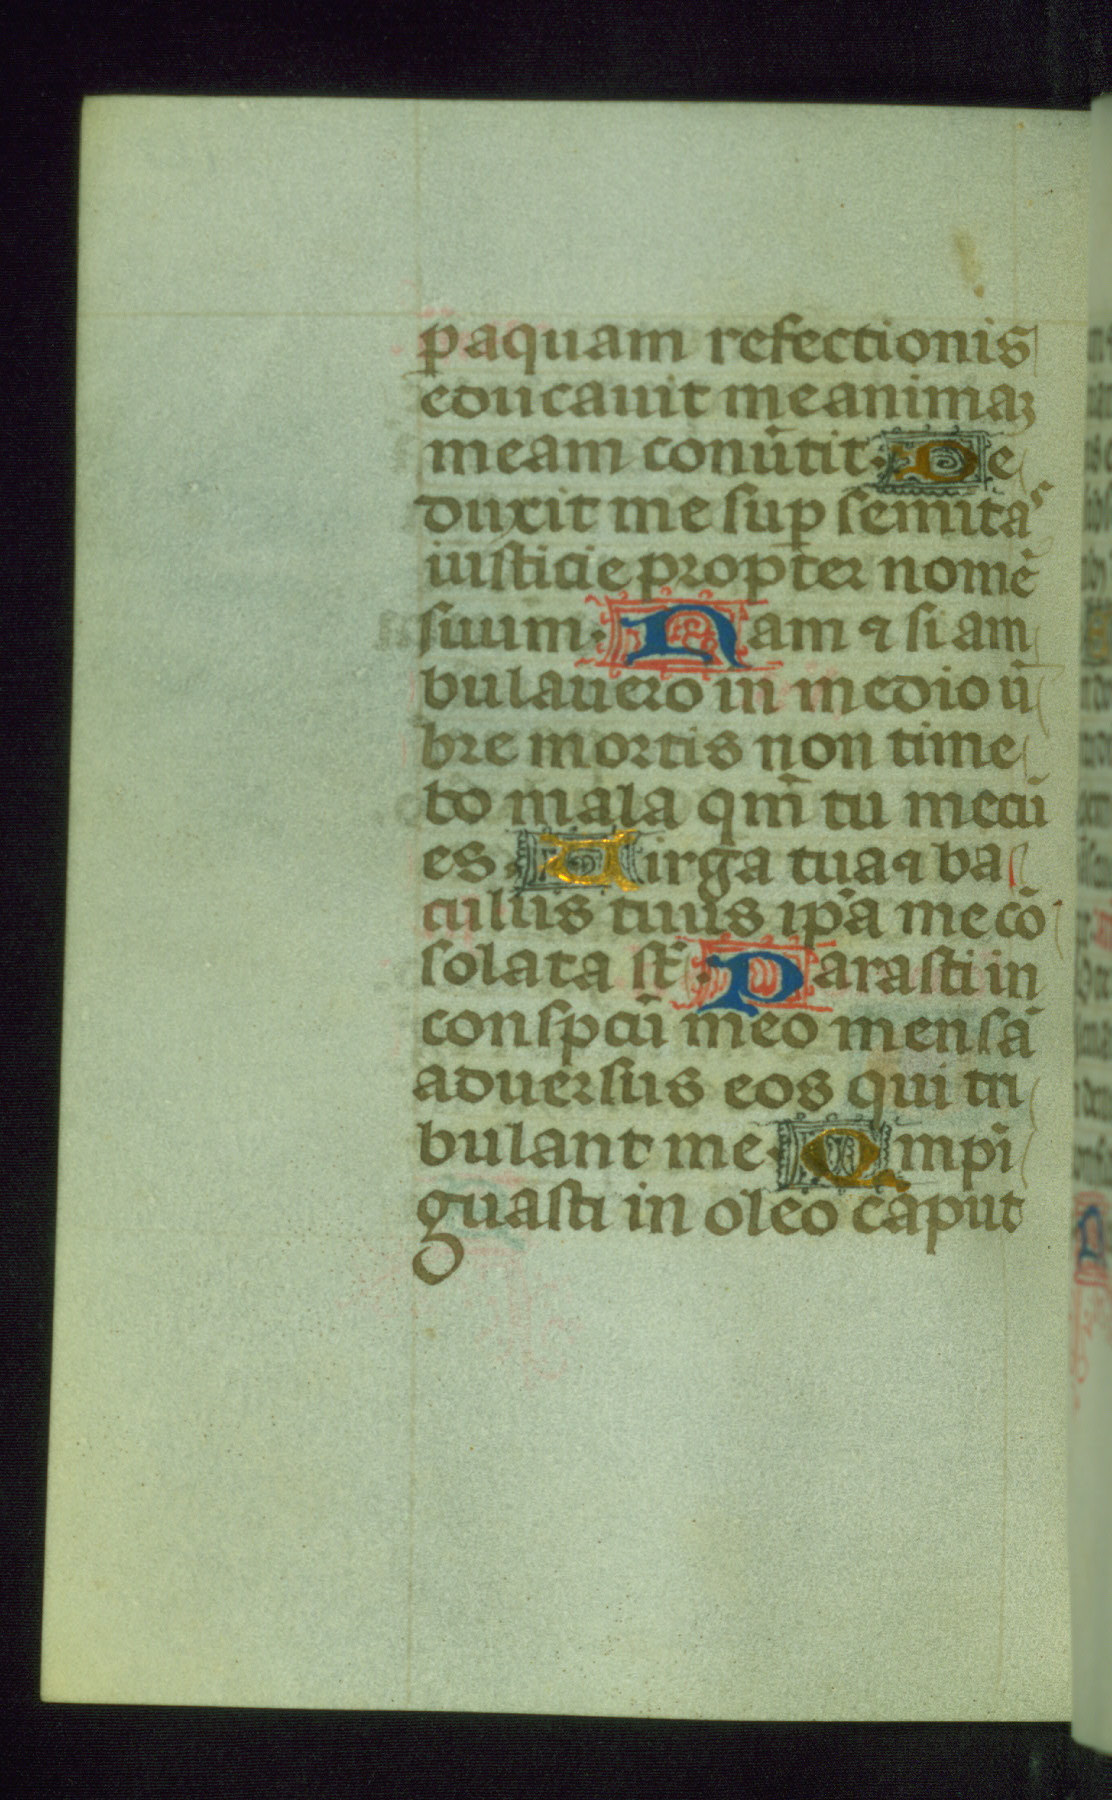 paquam refectionis
educauit me animaꝫ
meam conũtit · De
duxit me sup semitas
iusticie propter nomẽ
suum · Nam ⁊ si am
bulauero in medio ũ
bre mortis non time
bo mala qm̃ tu mecũ
es · Uirga tua ⁊ ba
culus tuus ip̃a me cõ
solata st̃ · Parasti in
conspcũ meo mensã
aduersus eos qui tri
bulant me · Impĩ
guasti in oleo caput